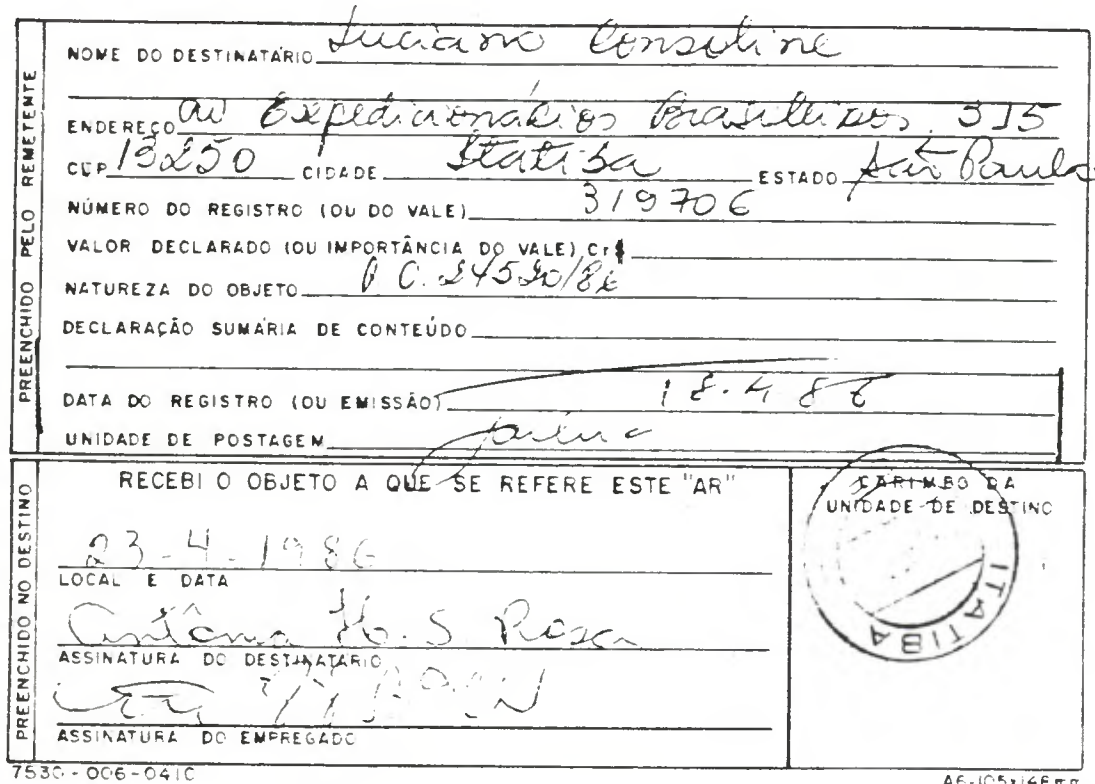 PREENCHIDO PELO REMETENTE
NOME DO DESTINATÁRIO Luciano Consoline
ENDEREÇO av Expedicionários Brasileiros 315
CEP 13250 CIDADE Itatiba ESTADO São Paulo
NÚMERO DO REGISTRO (OU DO VALE) 319706
VALOR DECLARADO (OU IMPORTÂNCIA DO VALE) Cr$
NATUREZA DO OBJETO C. 24520/86
DECLARAÇÃO SUMÁRIA DE CONTEÚDO
DATA DO REGISTRO (OU EMISSÃO) 18.4 86
UNIDADE DE POSTAGEM
PREENCHIDO NO DESTINO
RECEBI O OBJETO A QUE SE REFERE ESTE "AR"
CARIMBO DA
UNIDADE DE DESTINO
23-4-1986
LOCAL E DATA
Antônia H. S. Rosa
ASSINATURA DO DESTINATÁRIO
ASSINATURA DO EMPREGADO
ITATIBA
7530-006-0410
A6-105x148mm